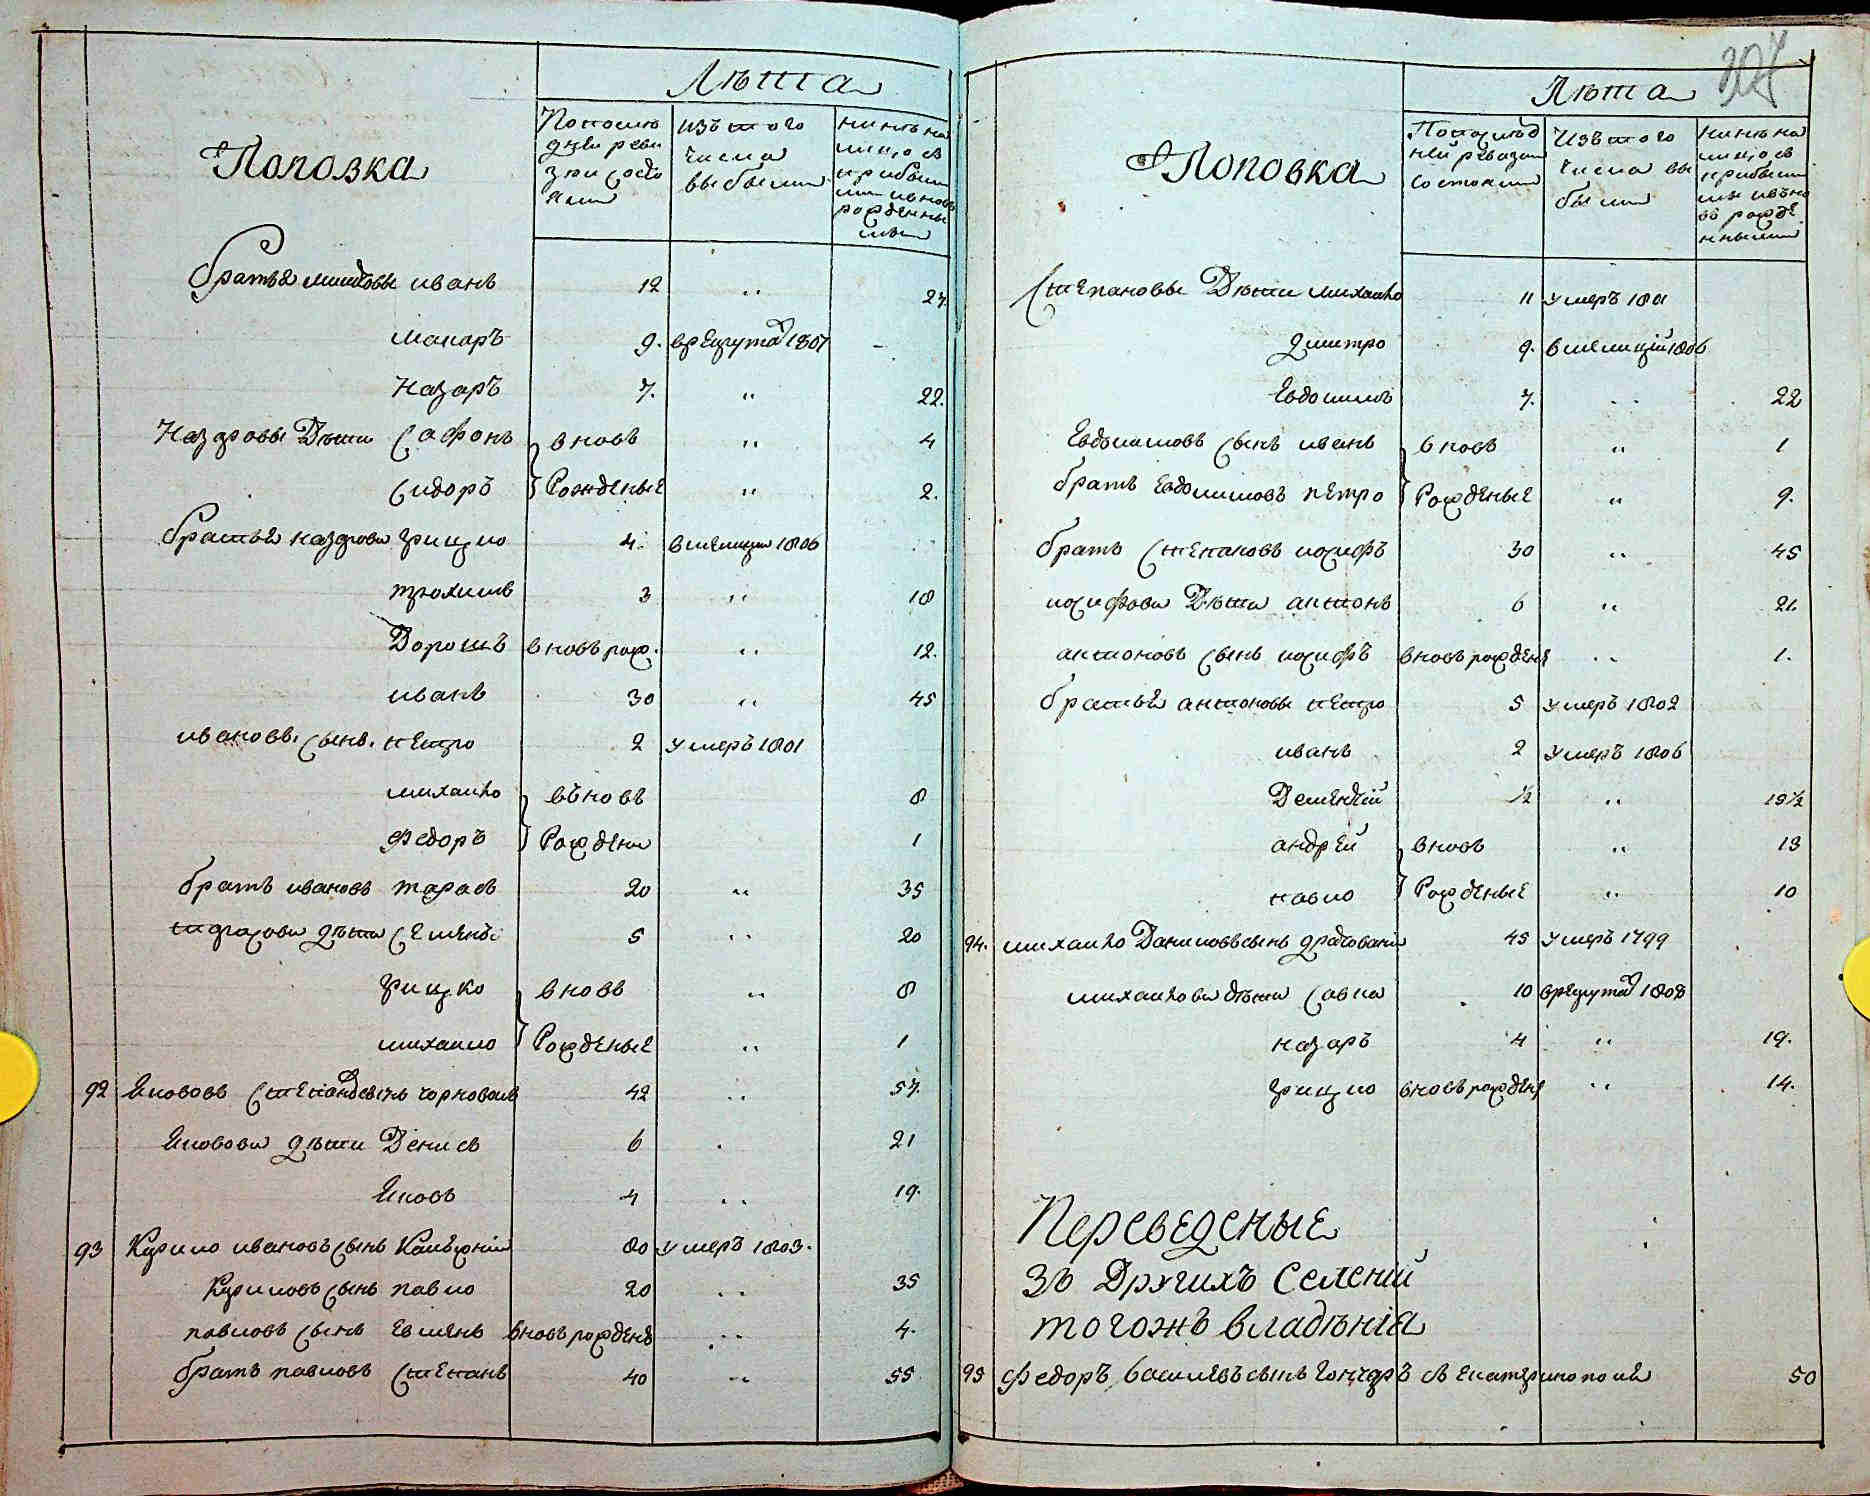 Лѣта
Поповка
По послѣ
дней реви
зіи состо
яли
Изъ того
числа
выбыли
Нинѣ на
лицо съ
прибыли
ми и вновь
рожденны
ми
братья иванъ 12 „ 27.
Макаръ 9. в рекруты 1807 -
Назаръ 7. „ 22.
Назаровы Дѣти Сафонъ вновь „ 4
Сидоръ Рожденые „ 2.
братья назаровы грицко 4. в милиции 1806
трохимъ 3 „ 18
Дорошъ вновь рож. „ 12.
иванъ 30 „ 45
ивановъ сынъ петро 2 умеръ 1801
михайло въновь 8
Федоръ Рождены 1
братъ ивановъ тарасъ 20 „ 35
тарасовы дѣти Семенъ 5 „ 20
грицко вновь „ 8
михайло Рожденые „ 1
92 Яковъ Степановъ сынъ 42 „ 57.
Яковови дѣти Денисъ 6 . 21
Яковъ 4 „ 19.
93 Кирило ивановъ сынъ 80 умеръ 1803.
Кириловъ сынъ павло 20 „ 35
павловъ сынъ Евменъ вновь рожденъ „ 4.
братъ павловъ Степанъ 40 „ 55
304
Лѣта
Поповка
По послѣд
ней ревизии
состояли
Изъ того
числа вы
были
Нинѣ на
лицо съ
прибыли
ми и въно
въ рожде
нными
Степановы Дѣти михайло 11 умеръ 1801
дмитро 9. в милиций 1806
Евдокимъ 7. „ 22
Евдокимовъ сынъ иванъ вновь „ 1
братъ Евдокимовъ петро Рожденые „ 9.
братъ Степановъ иосифъ 30 „ 45
иосифови Дѣти антонъ 6 „ 21.
антоновъ сынъ иосифъ вновь рожденъ „ 1.
братья антоновы петро 5 умеръ 1802
иванъ 2 умеръ 1806
Дементій ½ „ 15½
андрей вновь „ 13
павло Рожденые „ 10
94. михайло Даниловъ сынъ 45 умеръ 1799
михайлови дѣти Савка 10 в рекруты 1808
назаръ 4 „ 19.
грицко вновь рожденъ „ 14.
Переведеные
зъ Другихъ Селений
тогожъ владѣнія
95 Федоръ Василевъ сынъ гончаръ съ Екатеринополя 50